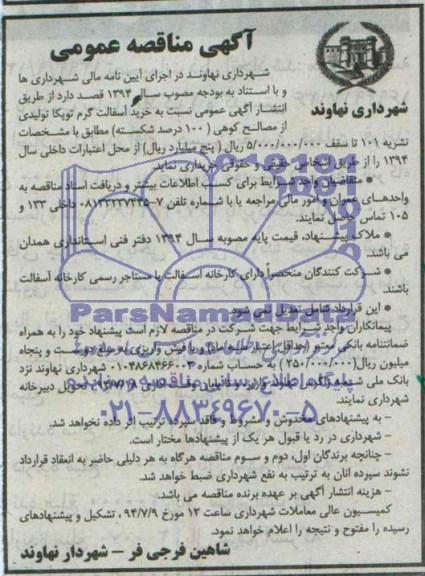 آگهی مناقصه عمومی
شهرداری نهاوند
شهرداری نهاوند در اجرای آیین نامه مالی شهرداری ها
و با استناد به بودجه مصوب سال ۱۳۹۴ قصد دارد از طریق
انتشار آگهی عمومی نسبت به خرید آسفالت گرم توپکا تولیدی
از مصالح کوهی (۱۰۰ درصد شکسته) مطابق با مشخصات
نشریه ۱۰۱ تا سقف ۵/۰۰۰/۰۰۰/۰۰۰ ریال (پنج میلیارد ریال) از محل اعتبارات داخلی سال
۱۳۹۴ را از طریق اشخاص حقیقی و حقوقی خریداری نماید.
* متقاضیان واجد شرایط برای کسب اطلاعات بیشتر و دریافت اسناد مناقصه به
واحدهای عمران و امور مالی مراجعه یا با شماره تلفن ۷-۰۸۱۳۳۲۳۷۲۳۵ داخلی ۱۳۳ و
۱۰۵ تماس حاصل نمایند.
* ملاک پیشنهاد، قیمت پایه مصوبه سال ۱۳۹۴ دفتر فنی استانداری همدان
می باشد.
* شرکت کنندگان منحصراً دارای کارخانه آسفالت یا مستاجر رسمی کارخانه آسفالت
باشند.
* این قرارداد شامل تعدیل نمی شود.
پیمانکاران واجد شرایط جهت شرکت در مناقصه لازم است پیشنهاد خود را به همراه
ضمانتنامه بانکی معتبر (حداقل اعتبار سه ماه) و یا فیش واریزی به مبلغ دویست و پنجاه
میلیون ریال (۲۵۰/۰۰۰/۰۰۰) به حساب شماره ۰۱۰۴۸۶۸۴۶۶۰۰۳ شهرداری نهاوند نزد
بانک ملی شعبه تا پایان وقت اداری ۹۴/۷/۸ تحویل دبیرخانه
شهرداری نمایند.
- به پیشنهادهای مخدوش و مشروط و فاقد سپرده ترتیب اثر داده نخواهد شد.
- شهرداری در رد یا قبول هر یک از پیشنهادها مختار است.
- چنانچه برندگان اول، دوم و سوم مناقصه هرگاه به هر دلیلی حاضر به انعقاد قرارداد
نشوند سپرده آنان به ترتیب به نفع شهرداری ضبط خواهد شد.
- هزینه انتشار آگهی بر عهده برنده مناقصه می باشد.
کمیسیون عالی معاملات شهرداری ساعت ۱۲ مورخ ۹۴/۷/۹ تشکیل و پیشنهادهای
رسیده را مفتوح و نتیجه را اعلام خواهد نمود.
شاهین فرجی فر - شهردار نهاوند
ParsNamadData
۰۲۱-۸۸۳۴۹۶۷۰-۵